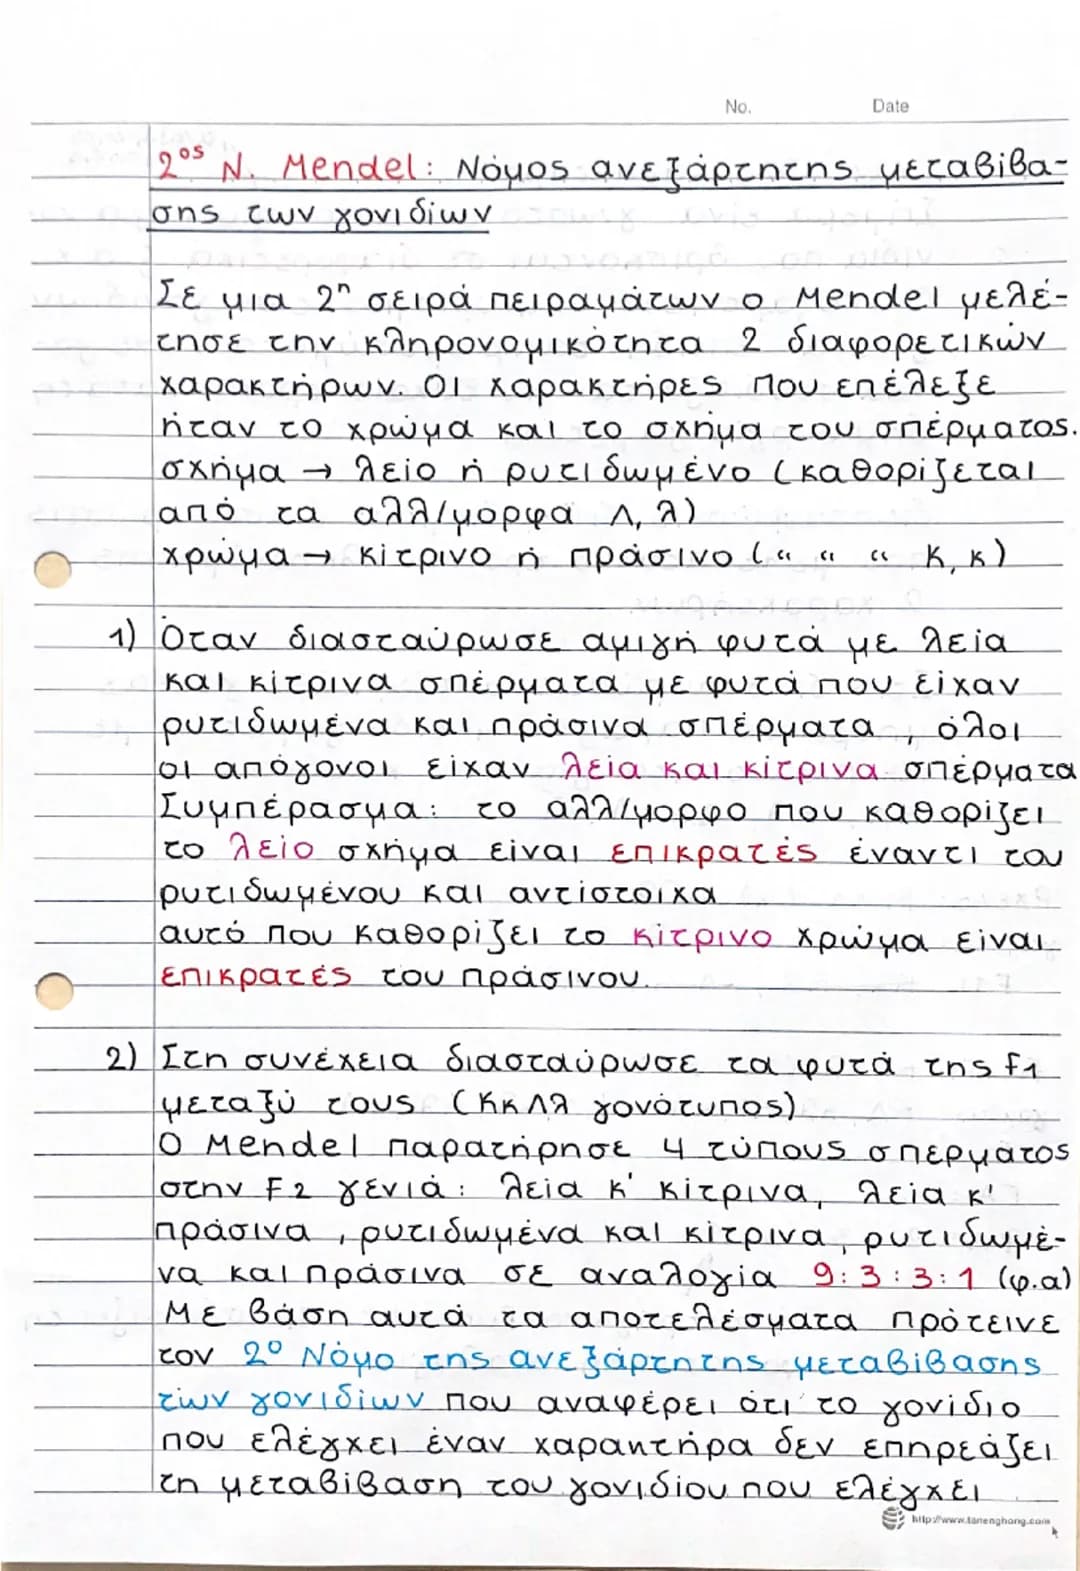 No. Date
2ος Ν. Mendel: Νόμος ανεξάρτητης μεταβίβα-
σης των γονιδίων
Σε μια 2η σειρά πειραμάτων ο Mendel μελέ-
τησε την κληρονομικότητα 2 διαφορετικών
χαρακτήρων. Οι χαρακτήρες που επέλεξε
ήταν το χρώμα και το σχήμα του σπέρματος.
σχήμα → λείο ή ρυτιδωμένο (καθορίζεται
από τα αλλ/μορφα Λ, λ)
χρώμα → κίτρινο ή πράσινο (“ “ “ Κ, κ)
1) Όταν διασταύρωσε αμιγή φυτά με λεία
και κίτρινα σπέρματα με φυτά που είχαν
ρυτιδωμένα και πράσινα σπέρματα, όλοι
οι απόγονοι είχαν λεία και κίτρινα σπέρματα
Συμπέρασμα: το αλλ/μορφο που καθορίζει
το λείο σχήμα είναι επικρατές έναντι του
ρυτιδωμένου και αντίστοιχα
αυτό που καθορίζει το κίτρινο χρώμα είναι
επικρατές του πράσινου.
2) Στη συνέχεια διασταύρωσε τα φυτά της F1
μεταξύ τους (ΚκΛλ γονότυπος)
Ο Mendel παρατήρησε 4 τύπους σπερματος
στην F2 γενιά: λεία κ' κίτρινα, λεία κ'
πράσινα, ρυτιδωμένα και κίτρινα, ρυτιδωμέ-
να και πράσινα σε αναλογία 9:3:3:1 (φ.α)
Με βάση αυτά τα αποτελέσματα πρότεινε
τον 2º Νόμο της ανεξάρτητης μεταβίβασης
των γονιδίων που αναφέρει ότι το γονίδιο
που ελέγχει έναν χαρακτήρα δεν επηρεάζει
τη μεταβίβαση του γονιδίου που ελέγχει
http://www.tanenghong.com